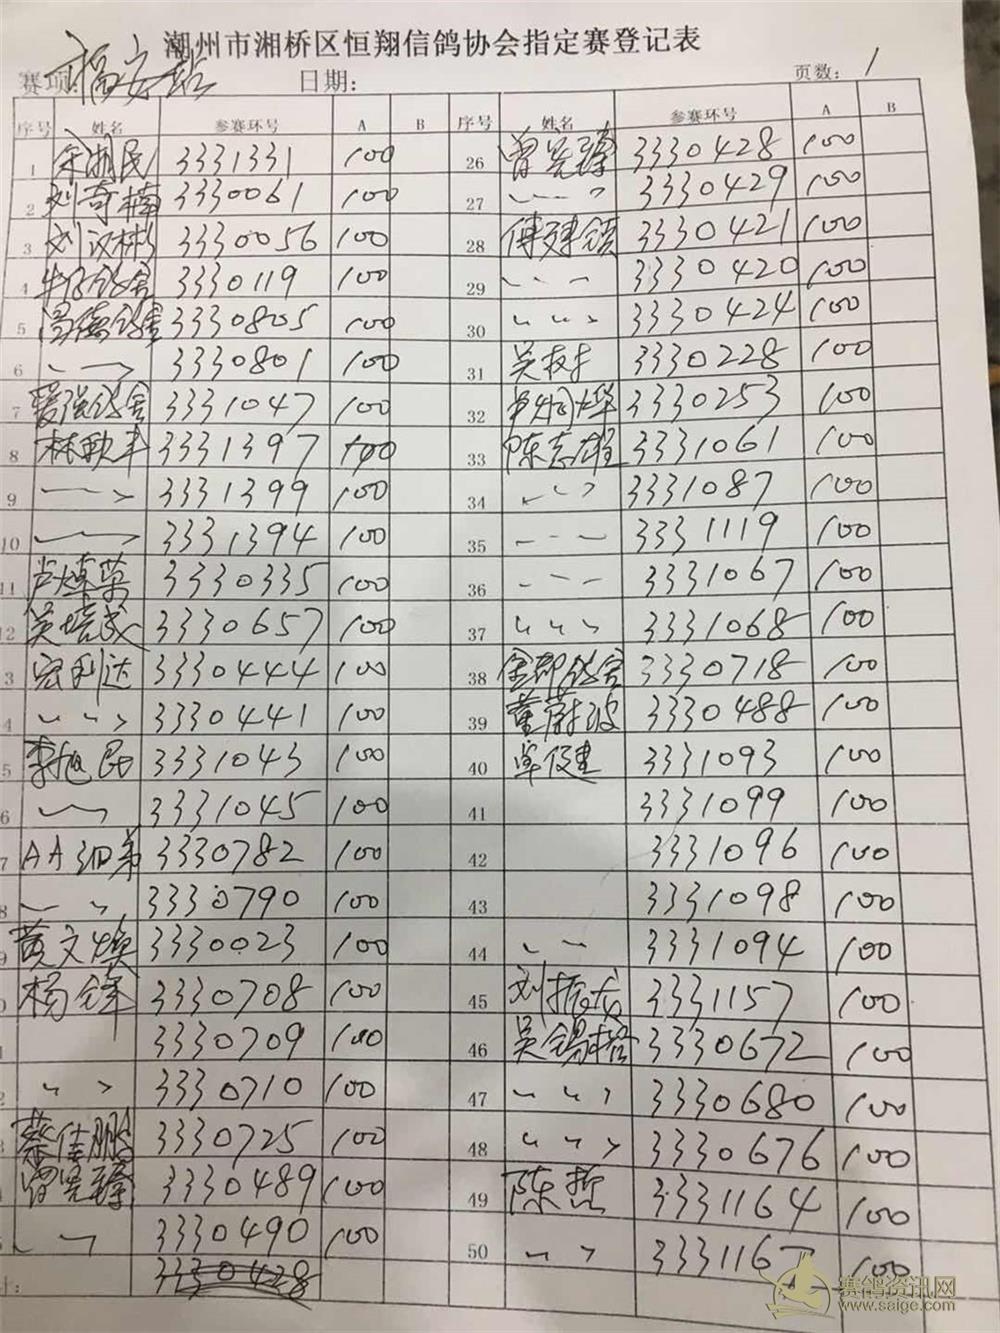 潮州市湘桥区恒翔信鸽协会指定赛登记表
赛项 福安站 日期: 页数: 1
序号 姓名 参赛环号 A B 序号 姓名 参赛环号 A B
1 3331331 100 26 曾宪臻 3330428 100
2 刘奇楠 3330061 100 27 〃 3330429 100
3 刘汉彬 3330056 100 28 傅建锁 3330421 100
4 牛仔鸽舍 3330119 100 29 〃 3330420 100
5 昌德鸽舍 3330805 100 30 〃 3330424 100
6 〃 3330801 100 31 3330228 100
7 爱强鸽舍 3331047 100 32 3330253 100
8 林耿丰 3331397 100 33 陈志雄 3331061 100
9 〃 3331399 100 34 〃 3331087 100
10 〃 3331394 100 35 〃 3331119 100
11 卢焯荣 3330335 100 36 〃 3331067 100
12 吴培武 3330657 100 37 〃 3331068 100
3 宏利达 3330444 100 38 金郡鸽舍 3330718 100
4 〃 3330441 100 39 董蔚波 3330488 100
5 李旭民 3331043 100 40 卓俊建 3331093 100
6 〃 3331045 100 41 3331099 100
7 AA细弟 3330782 100 42 3331096 100
8 〃 3330790 100 43 3331098 100
9 黄文焕 3330023 100 44 〃 3331094 100
杨锋 3330708 100 45 3331157 100
3330709 100 46 吴锡楷 3330672 100
〃 3330710 100 47 〃 3330680 100
蔡佳鹏 3330725 100 48 〃 3330676 100
曾宪臻 3330489 100 49 陈哲 3331164 100
〃 3330490 100 50 〃 3331167 100
计: 3330428
赛鸽资讯网
www.saige.com